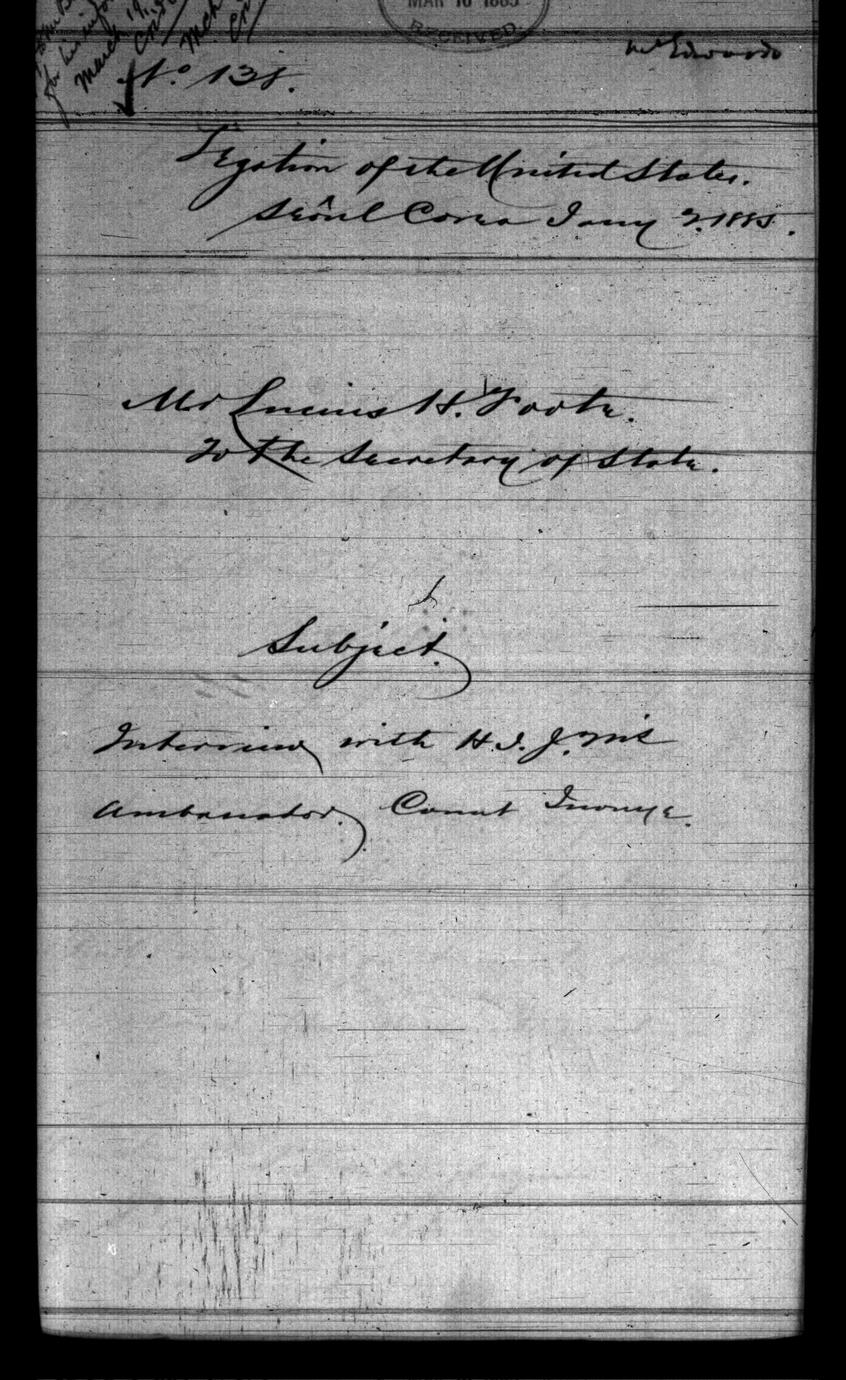 MAR 16 1885
RECEIVED.
March 19,
Mr Edwards
No 138.
Legation of the United States.
Seôul Corea Jany 2. 1885.
Mr Lucius H. Foote.
To the Secretary of State.
Subject.
Interview with H.I.J.M's
Ambassador, Count Inouye.